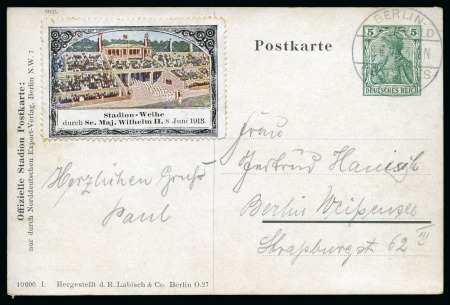 Offizielle Stadion Postkarte:
nur durch Norddeutschen Export-Verlag, Berlin N.W. 7
Stadion-Weihe
durch Se. Maj. Wilhelm II. 8. Juni 1913.
Postkarte
BERLIN-
5 5
DEUTSCHES REICH
Herzlichen Gruß
Paul
Frau
Gertrud Hanisch
Berlin Weißensee
Straßburgst 62 III
10000. I. Hergestellt d. R. Labisch & Co. Berlin O.27